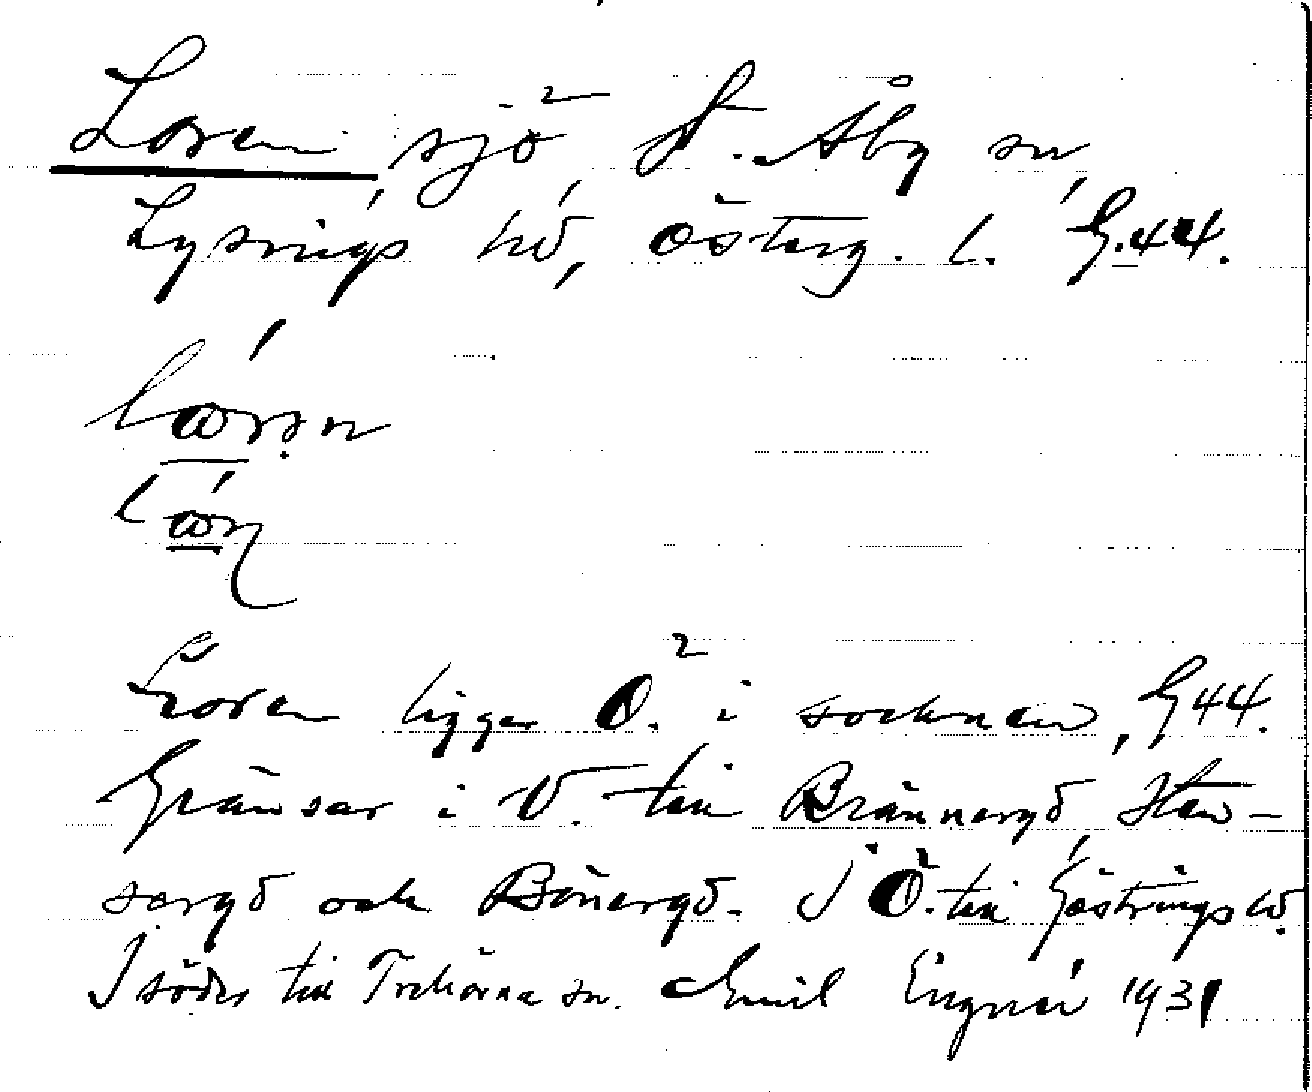 Loren, sjö, St. Åby sn,
Lysings hd, Österg. l. G.44.
Loren ligger Ö. i socknen, G44.
Gränsar i V. till Brännergd, Sten-
sergd och Bönergd. I Ö. till Göstrings hd.
I söder till Trehörna sn. Emil Engnér 1931